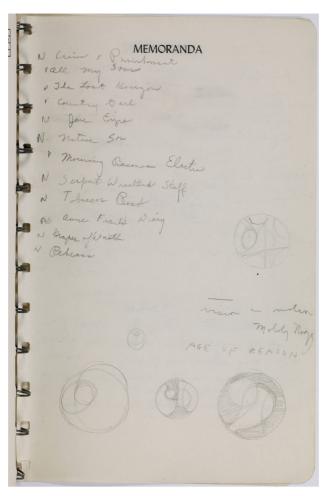 MEMORANDA
N Crime & Punishment
All My Sons
P The Lost Horizon
P Country Girl
N Jane Eyre
N Native Son
P Mourning Becomes Electra
N Serpent Wreathed Staff
N Tobacco Road
N Anne Frank's Diary
N Grapes of Wrath
N
vision in motion
Moholy Nagy
AGE OF REASON